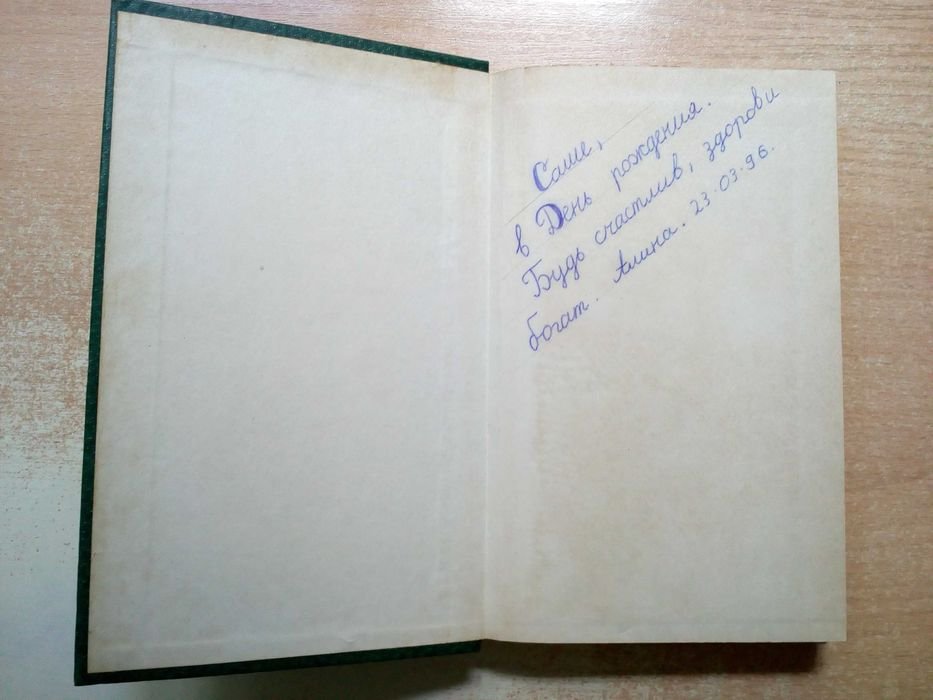 Саше,
в День рождения.
Будь счастлив, здоров и
богат. Алина. 23.03.96.